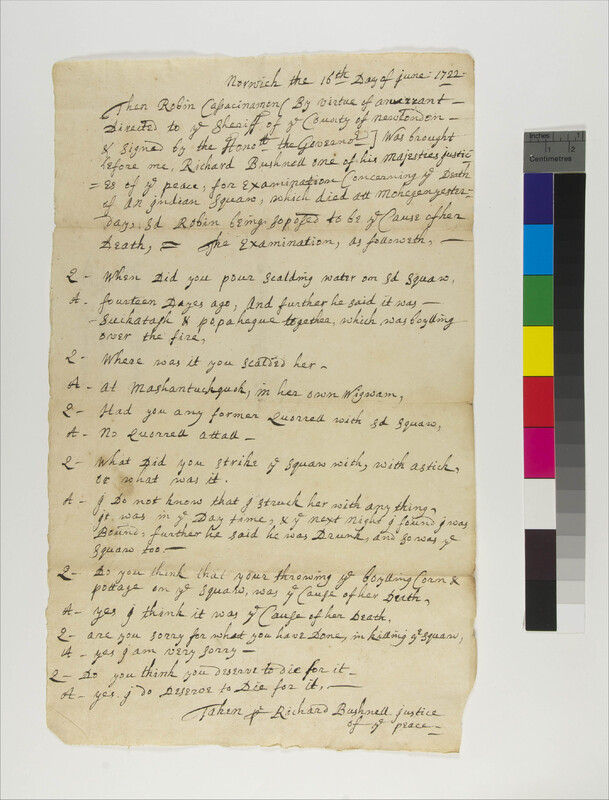 Norwich the 16th Day of june: 1722=
Then Robin Cassacinamon [ By virtue of a warrant —
Directed to ye Sheriff of ye County of newlondon —
& Signed by the Honoll the Governor ] Was brought
before me, Richard Bushnell one of his majesties justic
=es of ye peace, for Examination Concerning ye Death
of an jndian Squaw, which died att Mohegen yester-
day, sd Robin being soposed to be ye Cause of her
Death, = The Examination, as followeth, —
Q - When Did you pour scalding water on sd squaw,
A - fourteen Dayes ago, And further he said it was —
Suckatash & popaheque together, which was boylling
over the fire,
Q - Where was it you scalded her -
A - At Mashantuckquok, in her own Wigwam,
Q - Had you any former Quorrell with sd squaw,
A - No Quorrell attall -
Q - What Did you strike ye squaw with, with a stick,
or what was it.
A - j Do not know that j struck her with any thing,
jt was in ye Day time, & ye next night j found j was
Bound, further he said he was Drunk, and so was ye
Squaw too. —
Q - Do you think that your throwing ye boylling Corn &
pottage on ye squaw, was ye Cause of her Death,
A - yes j think it was ye Cause of her Death.
Q - are you sorry for what you have Done, in killing ye squaw,
A - yes j am very sorry -
Q - Do you think you deserve to die for it -
A - yes j do Deserve to Die for it, —
Taken pr Richard Bushnell justice
of ye peace -
inches 1 2
Centimetres